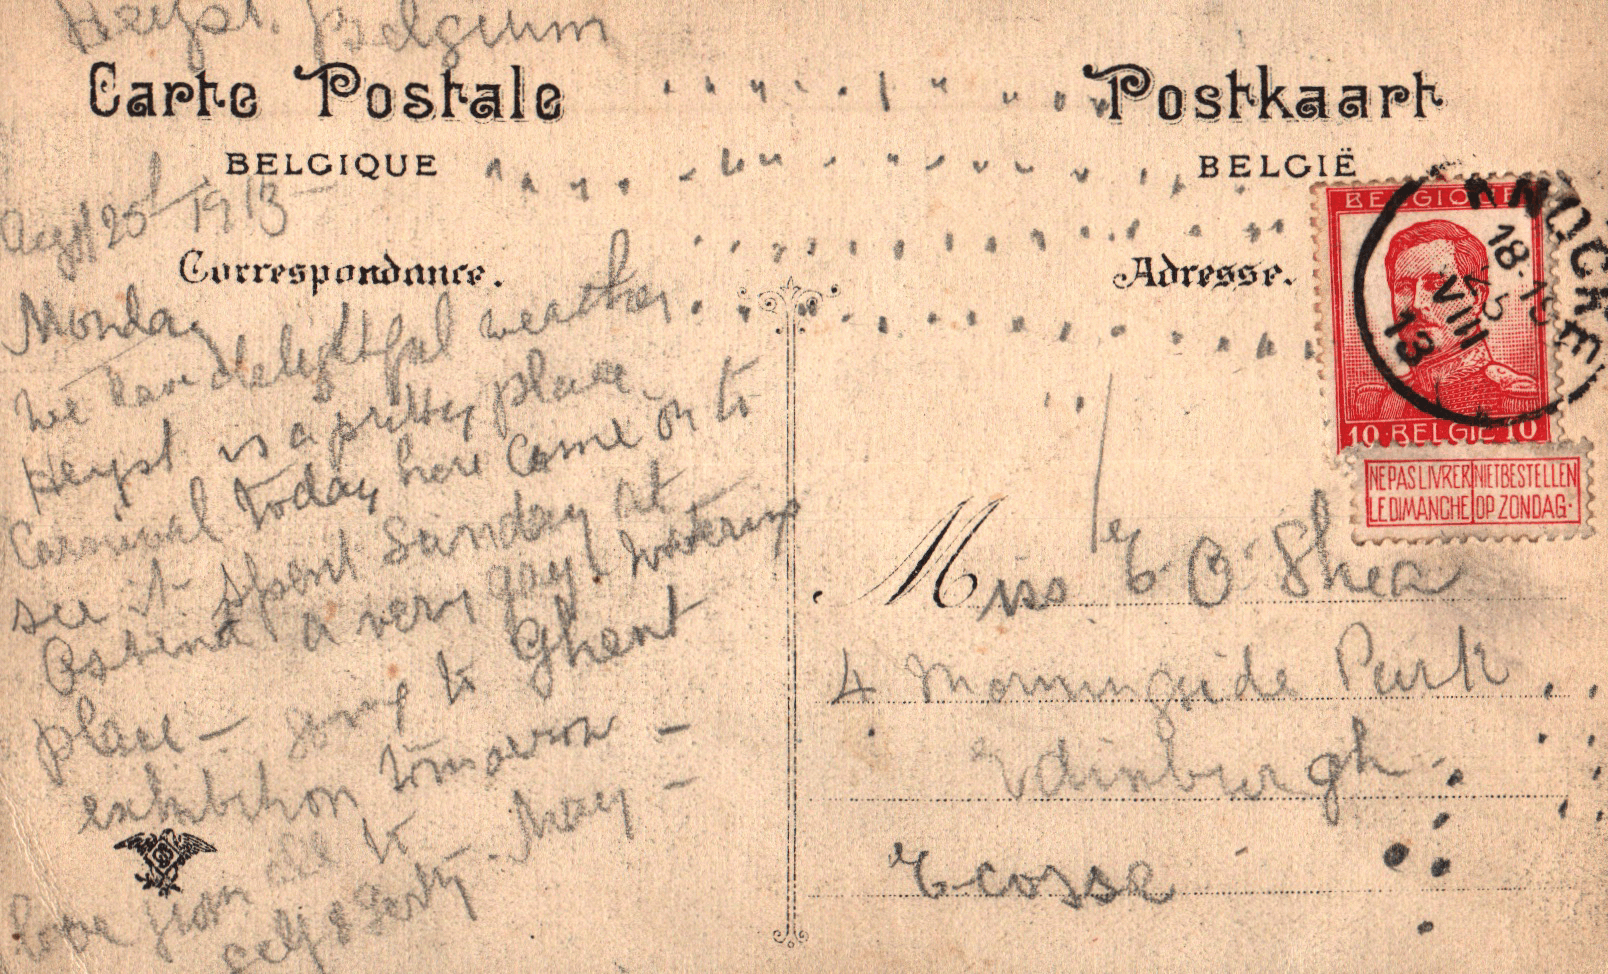 Heyst. Belgium
Carte Postale
BELGIQUE
Augst 25th 1913 -
Correspondance.
Monday
We have delightful weather.
Heyst is a pretty place
Carnival today here come on to
see it - spent Sunday at
Ostend a very gay watering
place - going to Ghent
exhibition tomorrow -
love from all to
self & Gerty - May -
Postkaart
BELGIË
Adresse.
BELGIQUE
10 BELGIË 10
NE PAS LIVRER LE DIMANCHE
NIET BESTELLEN OP ZONDAG.
KNOCKE
18-19
25
VIII
13
Miss E O'Shea
4 Morningside Park
Edinburgh
Ecosse